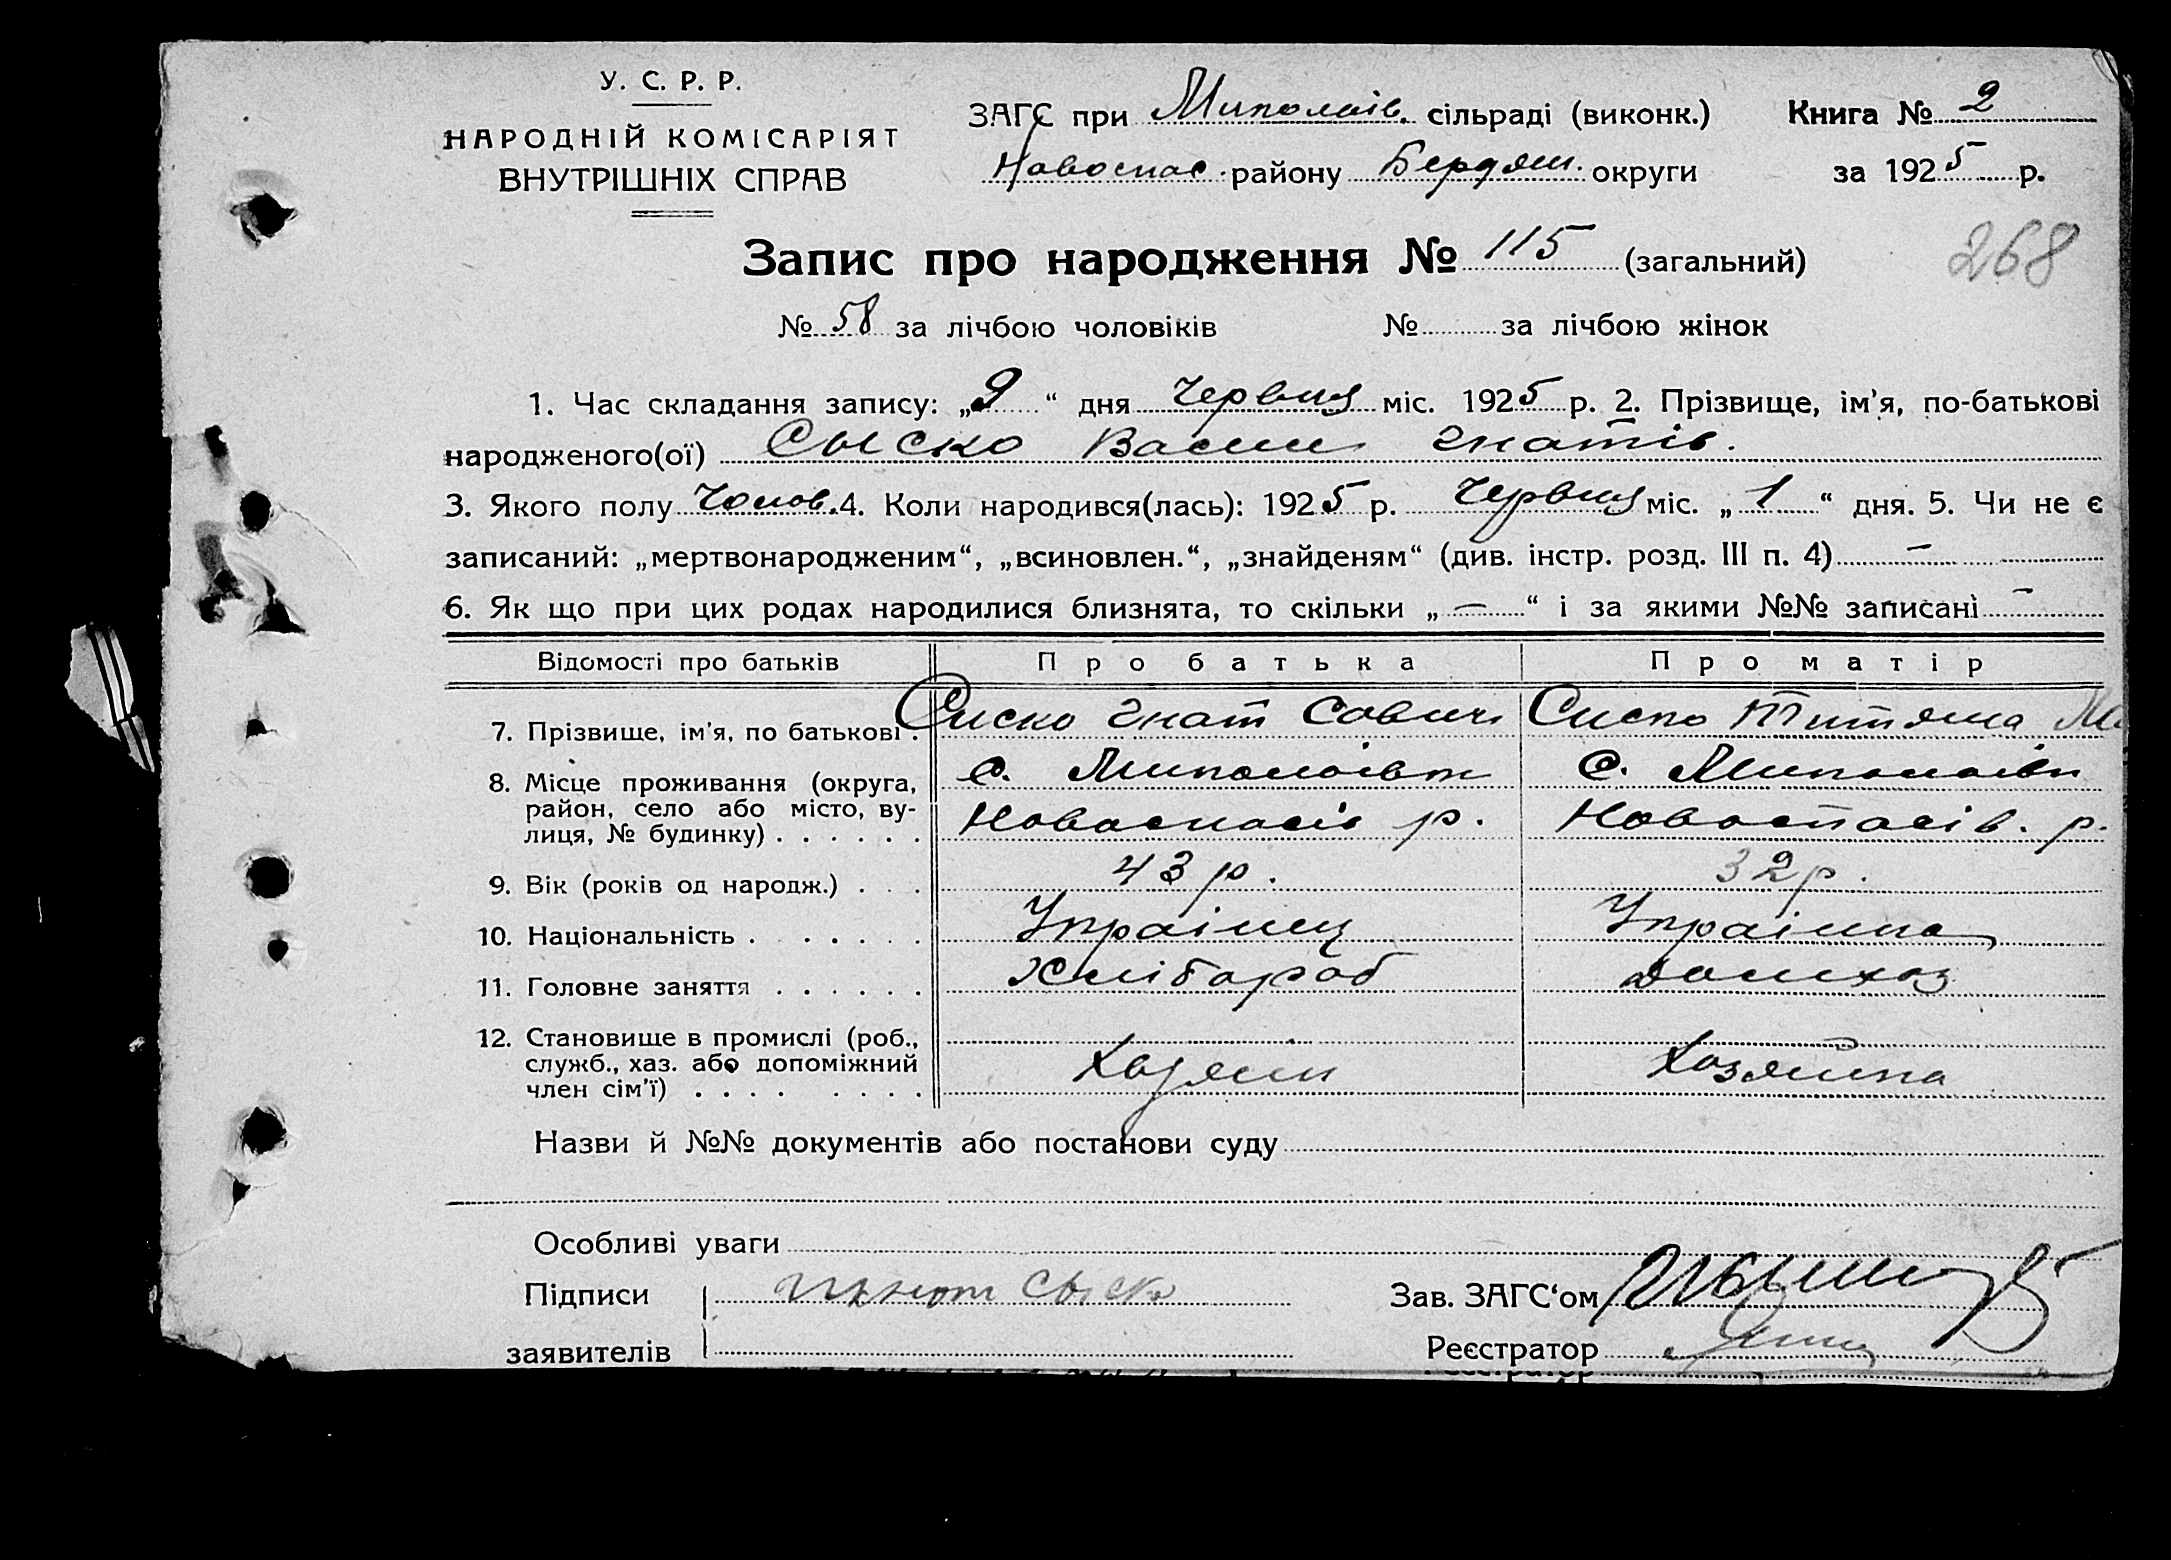 У. С. Р. Р.
НАРОДНІЙ КОМІСАРІЯТ
ВНУТРІШНІХ СПРАВ
ЗАГС при Миколаів. сільраді (виконк.) Книга № 2
Новоспас. району Бердян. округи за 1925 р.
268
Запис про народження № 115 (загальний)
№ 58 за лічбою чоловіків № за лічбою жінок
1. Час складання запису: „9“ дня Червця міс. 1925 р. 2. Прізвище, ім'я, по-батькові
народженого(ої) Сыско Васил Гнатів.
3. Якого полу Чолов. 4. Коли народився(лась): 1925 р. Червця міс. „1“ дня. 5. Чи не є
записаний: „мертвонародженим“, „всиновлен.“, „знайденям“ (див. інстр. розд. III п. 4) —
6. Як що при цих родах народилися близнята, то скільки „—“ і за якими №№ записані —
Відомості про батьків Про батька Про матір
7. Прізвище, ім'я, по батькові . Сиско Гнат Савич Сиско Титяна
8. Місце проживання (округа, с. Миколаівка С. Миколаівки
район, село або місто, ву-
лиця, № будинку) . . . . . . Новоспасів р. Новоспасів. р.
9. Вік (років од народж.) . . . 43 р. 32 р.
10. Національність . . . . . . Украінец Украінка
11. Головне заняття . . . . . . Хлібароб Домхоз
12. Становище в промислі (роб.,
служб., хаз. або допоміжний Хазяїн Хозяйка
член сім'ї) . . . . . . . .
Назви й №№ документів або постанови суду
Особливі уваги
Підписи Гнат Сыско Зав. ЗАГС‘ом
заявителів Реєстратор